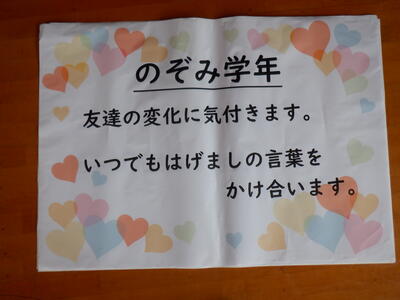 のぞみ学年
友達の変化に気付きます。
いつでもはげましの言葉を
かけ合います。